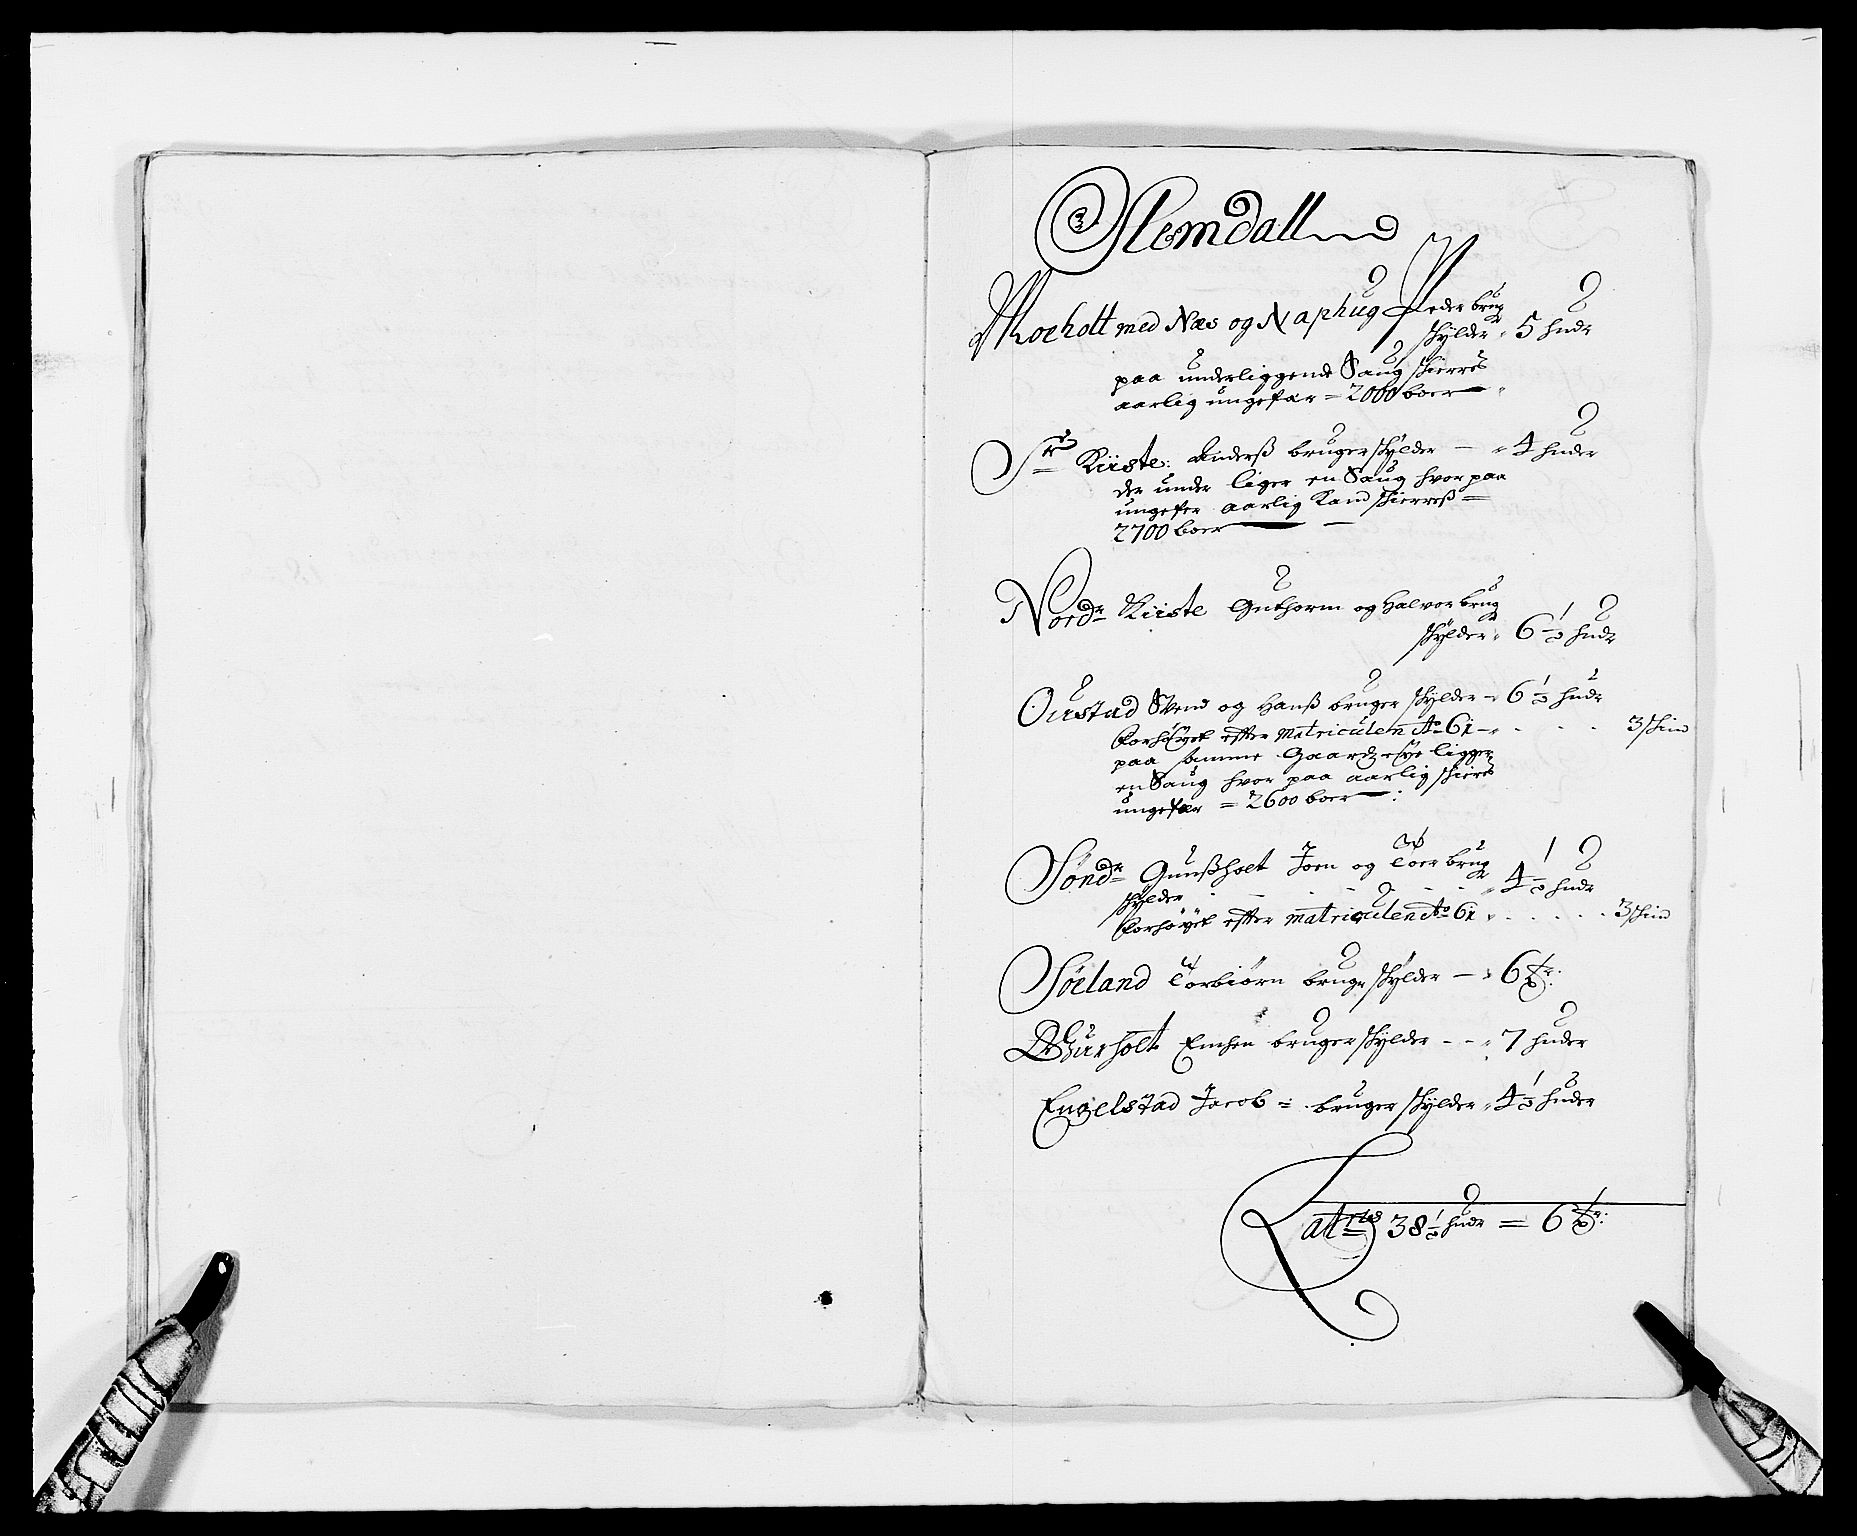 Slemdall
Moeholt med Næs og Naphug Peder brug
skÿlder 5 hudr
paa underliggende Saug skierres
aarlig ungefær = 2000 boer
Sr Kiiste: Anderß bruger skÿlder 4 huder
der under liger en Saug hvor paa
ungefer aarlig kand skierreß =
2700 boer
Nordr Kiiste Guthorm og Halvor brugr
skÿlder 6 1/2 hudr
Oustad Svend og Hanß bruger skÿlder 6 1/2 hudr
forhöÿet efter matriculen Ao 6i 3 skind
paa samme Gaardz eÿe ligger
en Saug hvor paa aarlig skieres
ungefær = 2600 boer
Söndr Gunßholt Joen og Toer brugr
skÿlder 4 1/2 hudr
forhöÿet efter matriculen Ao 6i 3 skind
Söeland Torbiörn bruger skÿlder 6
bruger skÿlder 7 huder
Engelstad Jacob = bruger skÿlder 4 1/2 huder
Latris 38 1/2 hudr = 6